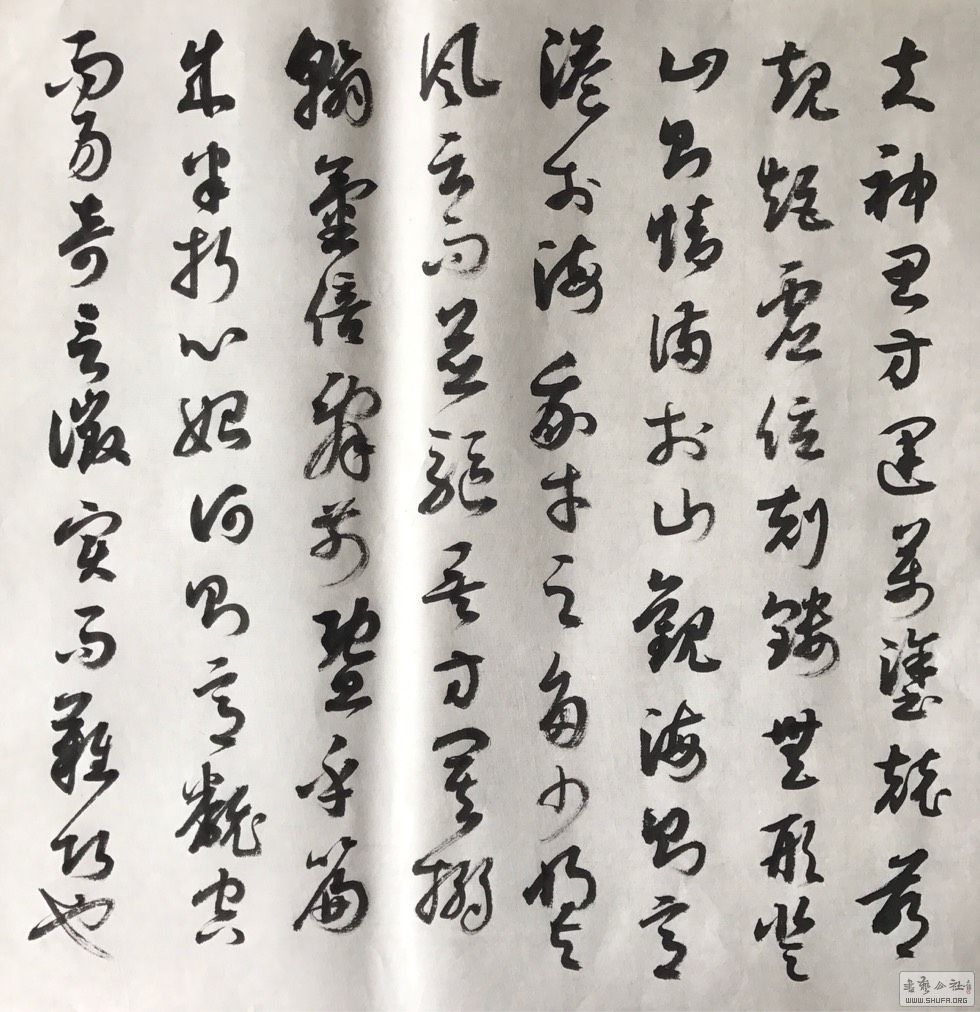 夫神思方運萬塗競萌
規矩虛位刻鏤無形登
山則情滿於山觀海則意
溢於海我才之多少將與
風云而並驅矣方其搦
翰氣倍辭前暨乎篇
成半折心始何則意翻空
而易奇言徵實而難巧也
書藝公社
WWW.SHUFA.ORG